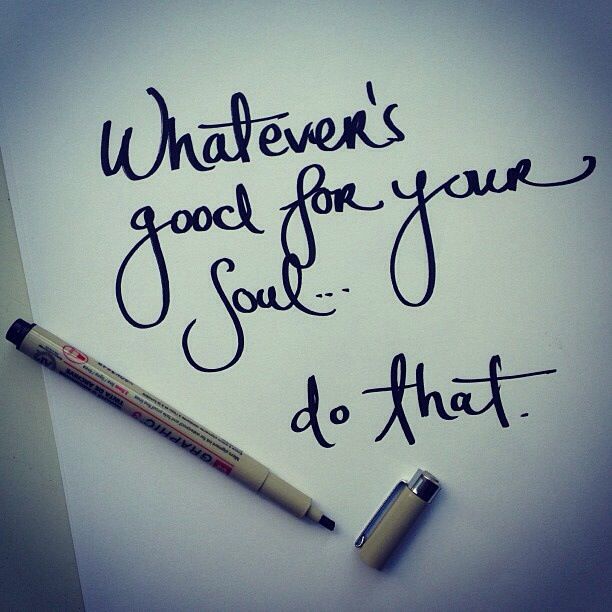 Whatever's
good for your
Soul...
do that.
GRAPHIC 3